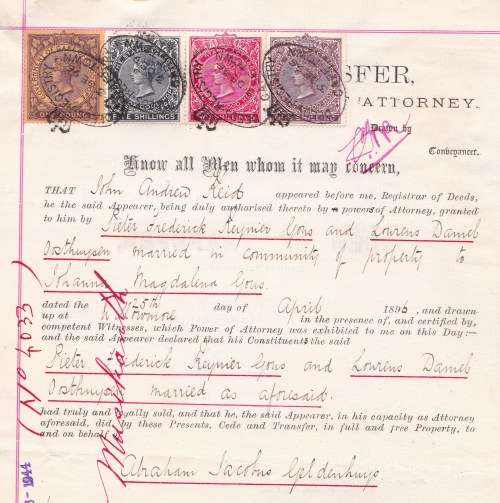 SFER,
ATTORNEY.
Drawn by
Conveyancer.
FIVE SHILLINGS
Know all Men whom it may concern,
THAT John Andrew Reid appeared before me, Registrar of Deeds,
he the said Appearer, being duly authorised thereto by powers of Attorney, granted
to him by Pieter Frederick Reynier Gous and Lourens Daniel
Oosthuysen married in community of property to
Johanna Magdalena Gous.
dated the 25th day of April 1896, and drawn
up at Willowmore in the presence of, and certified by,
competent Witnesses, which Power of Attorney was exhibited to me on this Day:—
and the said Appearer declared that his Constituents the said
Pieter Frederick Reynier Gous and Lourens Daniel
Oosthuysen married as aforesaid.
had truly and legally sold, and that he, the said Appearer, in his capacity as Attorney
aforesaid, did, by these Presents, Cede and Transfer, in full and free Property, to
and on behalf
Abraham Jacobus Geldenhuys
(No 4033)
1944